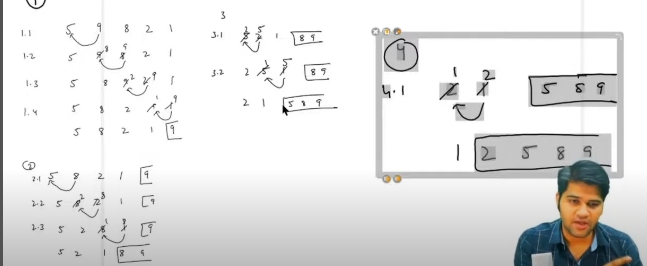 1
1.1 5 9 8 2 1
1.2 5 9 8 8 9 2 1
1.3 5 8 9 2 2 9 1
1.4 5 8 2 9 1 1 9
5 8 2 1 9
2
2.1 5 8 2 1 9
2.2 5 8 2 2 8 1 9
2.3 5 2 8 1 1 8 9
5 2 1 8 9
3
3.1 5 2 2 5 1 8 9
3.2 2 5 1 1 5 8 9
2 1 5 8 9
4
4.1 2 1 1 2 5 8 9
1 2 5 8 9